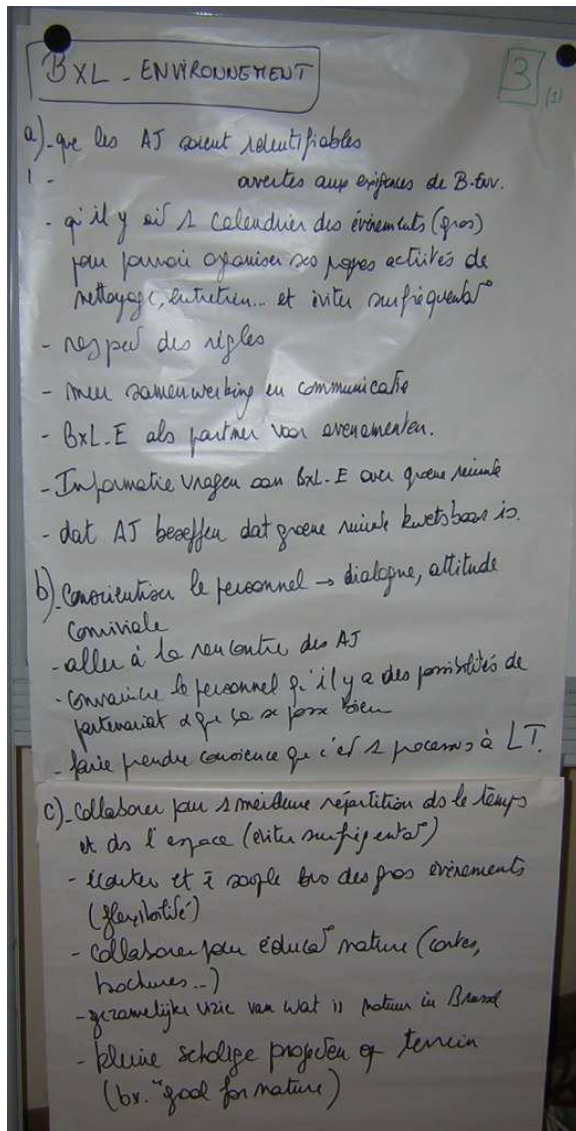 BXL - ENVIRONNEMENT
3
(1)
a) - que les AJ soient identifiables
1 - avertes aux exigences de B-Env.
- qu'il y ait 1 calendrier des événements (gros)
pour pouvoir organiser ses propres activités de
nettoyage, entretien... et éviter surfréquentat°
- respect des règles
- meer samenwerking en communicatie
- BXL-E als partner voor evenementen.
- Informatie vragen aan BXL-E over groene ruimte
- dat AJ beseffen dat groene ruimte kwetsbaar is.
b) - Conscientiser le personnel → dialogue, attitude
conviviale
- aller à la rencontre des AJ
- convaincre le personnel qu'il y a des possibilités de
partenariat et que ça se passe bien
- faire prendre conscience que c'est 1 processus à LT.
c) - Collaborer pour 1 meilleure répartition ds le temps
et ds l'espace (éviter surfréquentat°)
- écouter et ê souple lors des gros événements
(flexibilité)
- Collaborer pour éducat° nature (cartes,
brochures...)
- gezamelijke visie van wat is natuur in Brussel
- kleine schalige projecten op terrein
(bv. "goal for nature)